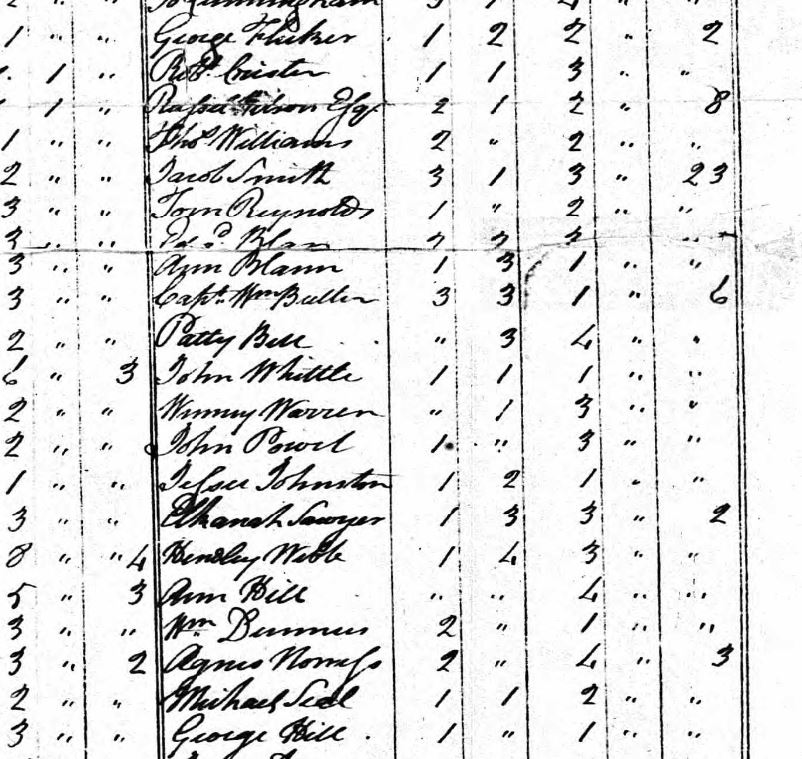 2 " " Jo Cunningham 3 1 4 " "
1 " " George Fluker 1 2 2 " 2
1 " Robt. 1 1 3 " "
1 " Esqr. 2 1 2 " 8
1 " " Thos. Williams 2 " 2 " "
2 " " Jacob Smith 3 1 3 " 23
3 " " Tom Reynolds 1 " 2 " "
3 " " 2 2 3 " "
3 " " Ann Blann 1 3 1 " "
3 " " Capt. Wm Butler 3 3 1 " 6
2 " " Patty Bell " 3 4 " "
6 " 3 John Whittle 1 1 1 " "
2 " " Winney Warren " 1 3 " "
2 " " John Powel 1 " 3 " "
1 " " Johnston 1 2 1 " "
3 " " Elkanah Sawyer 1 3 3 " 2
8 " " 4 Hendley Webb 1 4 3 " "
5 " 3 Ann Hill " " 4 " "
3 " " Wm 2 " 1 " "
3 " 2 Agnes 2 " 4 " 3
2 " " Michael Seal 1 1 2 " "
3 " " George Hill 1 " 1 " "